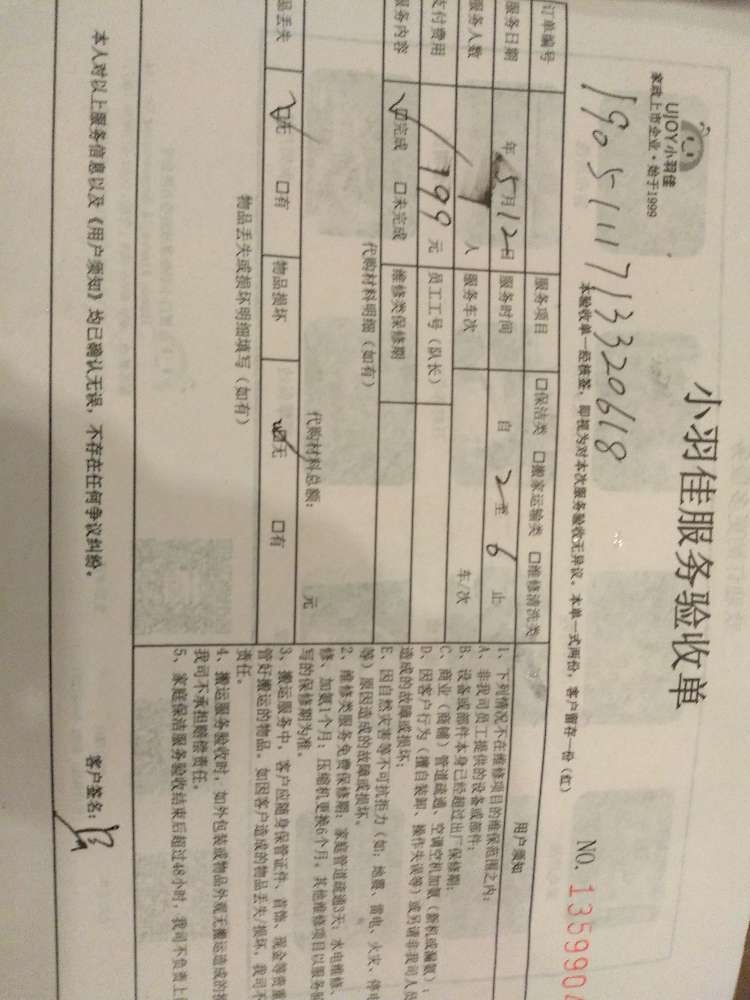 UJOY小羽佳
家政上市企业·始于1999
小羽佳服务验收单
NO. 135990
190511171332061８
本验收单一经核签，即视为对本次服务验收无异议。本单一式两份，客户留存一份（红）
订单编号 服务项目 口保洁类 口搬家运输类 口维修清洗类
服务日期 年5月12日 服务时间 自 2 至 6 止
服务人数 人 服务车次 车/次
支付费用 799 元 员工工号（队长）
服务内容 口完成 口未完成 维修类保修期
代购材料明细（如有）
代购材料总额： 元
品丢失 口无 口有 物品损坏 口无 口有
物品丢失或损坏明细填写（如有）
用户须知
1、下列情况不在维修项目的维保范围之内：
A、非我司员工提供的设备或部件；
B、设备或部件本身已经超过出厂保修期；
C、商业（商铺）管道疏通、空调空机加氨（新机或漏氨）；
D、因客户行为（擅自装卸、操作失误等）或另请非我司人员
造成的故障或损坏；
E、因自然灾害等不可抗拒力（如：地震、雷电、火灾、停电
等）原因造成的故障或损坏。
2、维修类服务免费保修期：家庭管道疏通3天；水电维修、
修、加氨1个月；压缩机更换6个月。其他维修项目以服务验
写的保修期为准。
3、搬运服务中，客户应随身保管证件、首饰、现金等贵重
管好搬运的物品。如因客户造成的物品丢失/损坏，我司不
责任。
4、搬运服务验收时，如外包装或物品外观无搬运造成的
我司不承担赔偿责任。
5、家庭保洁服务验收结束后超过48小时，我司不负责上
本人对以上服务信息以及《用户须知》均已确认无误，不存在任何争议纠纷。
客户签名：